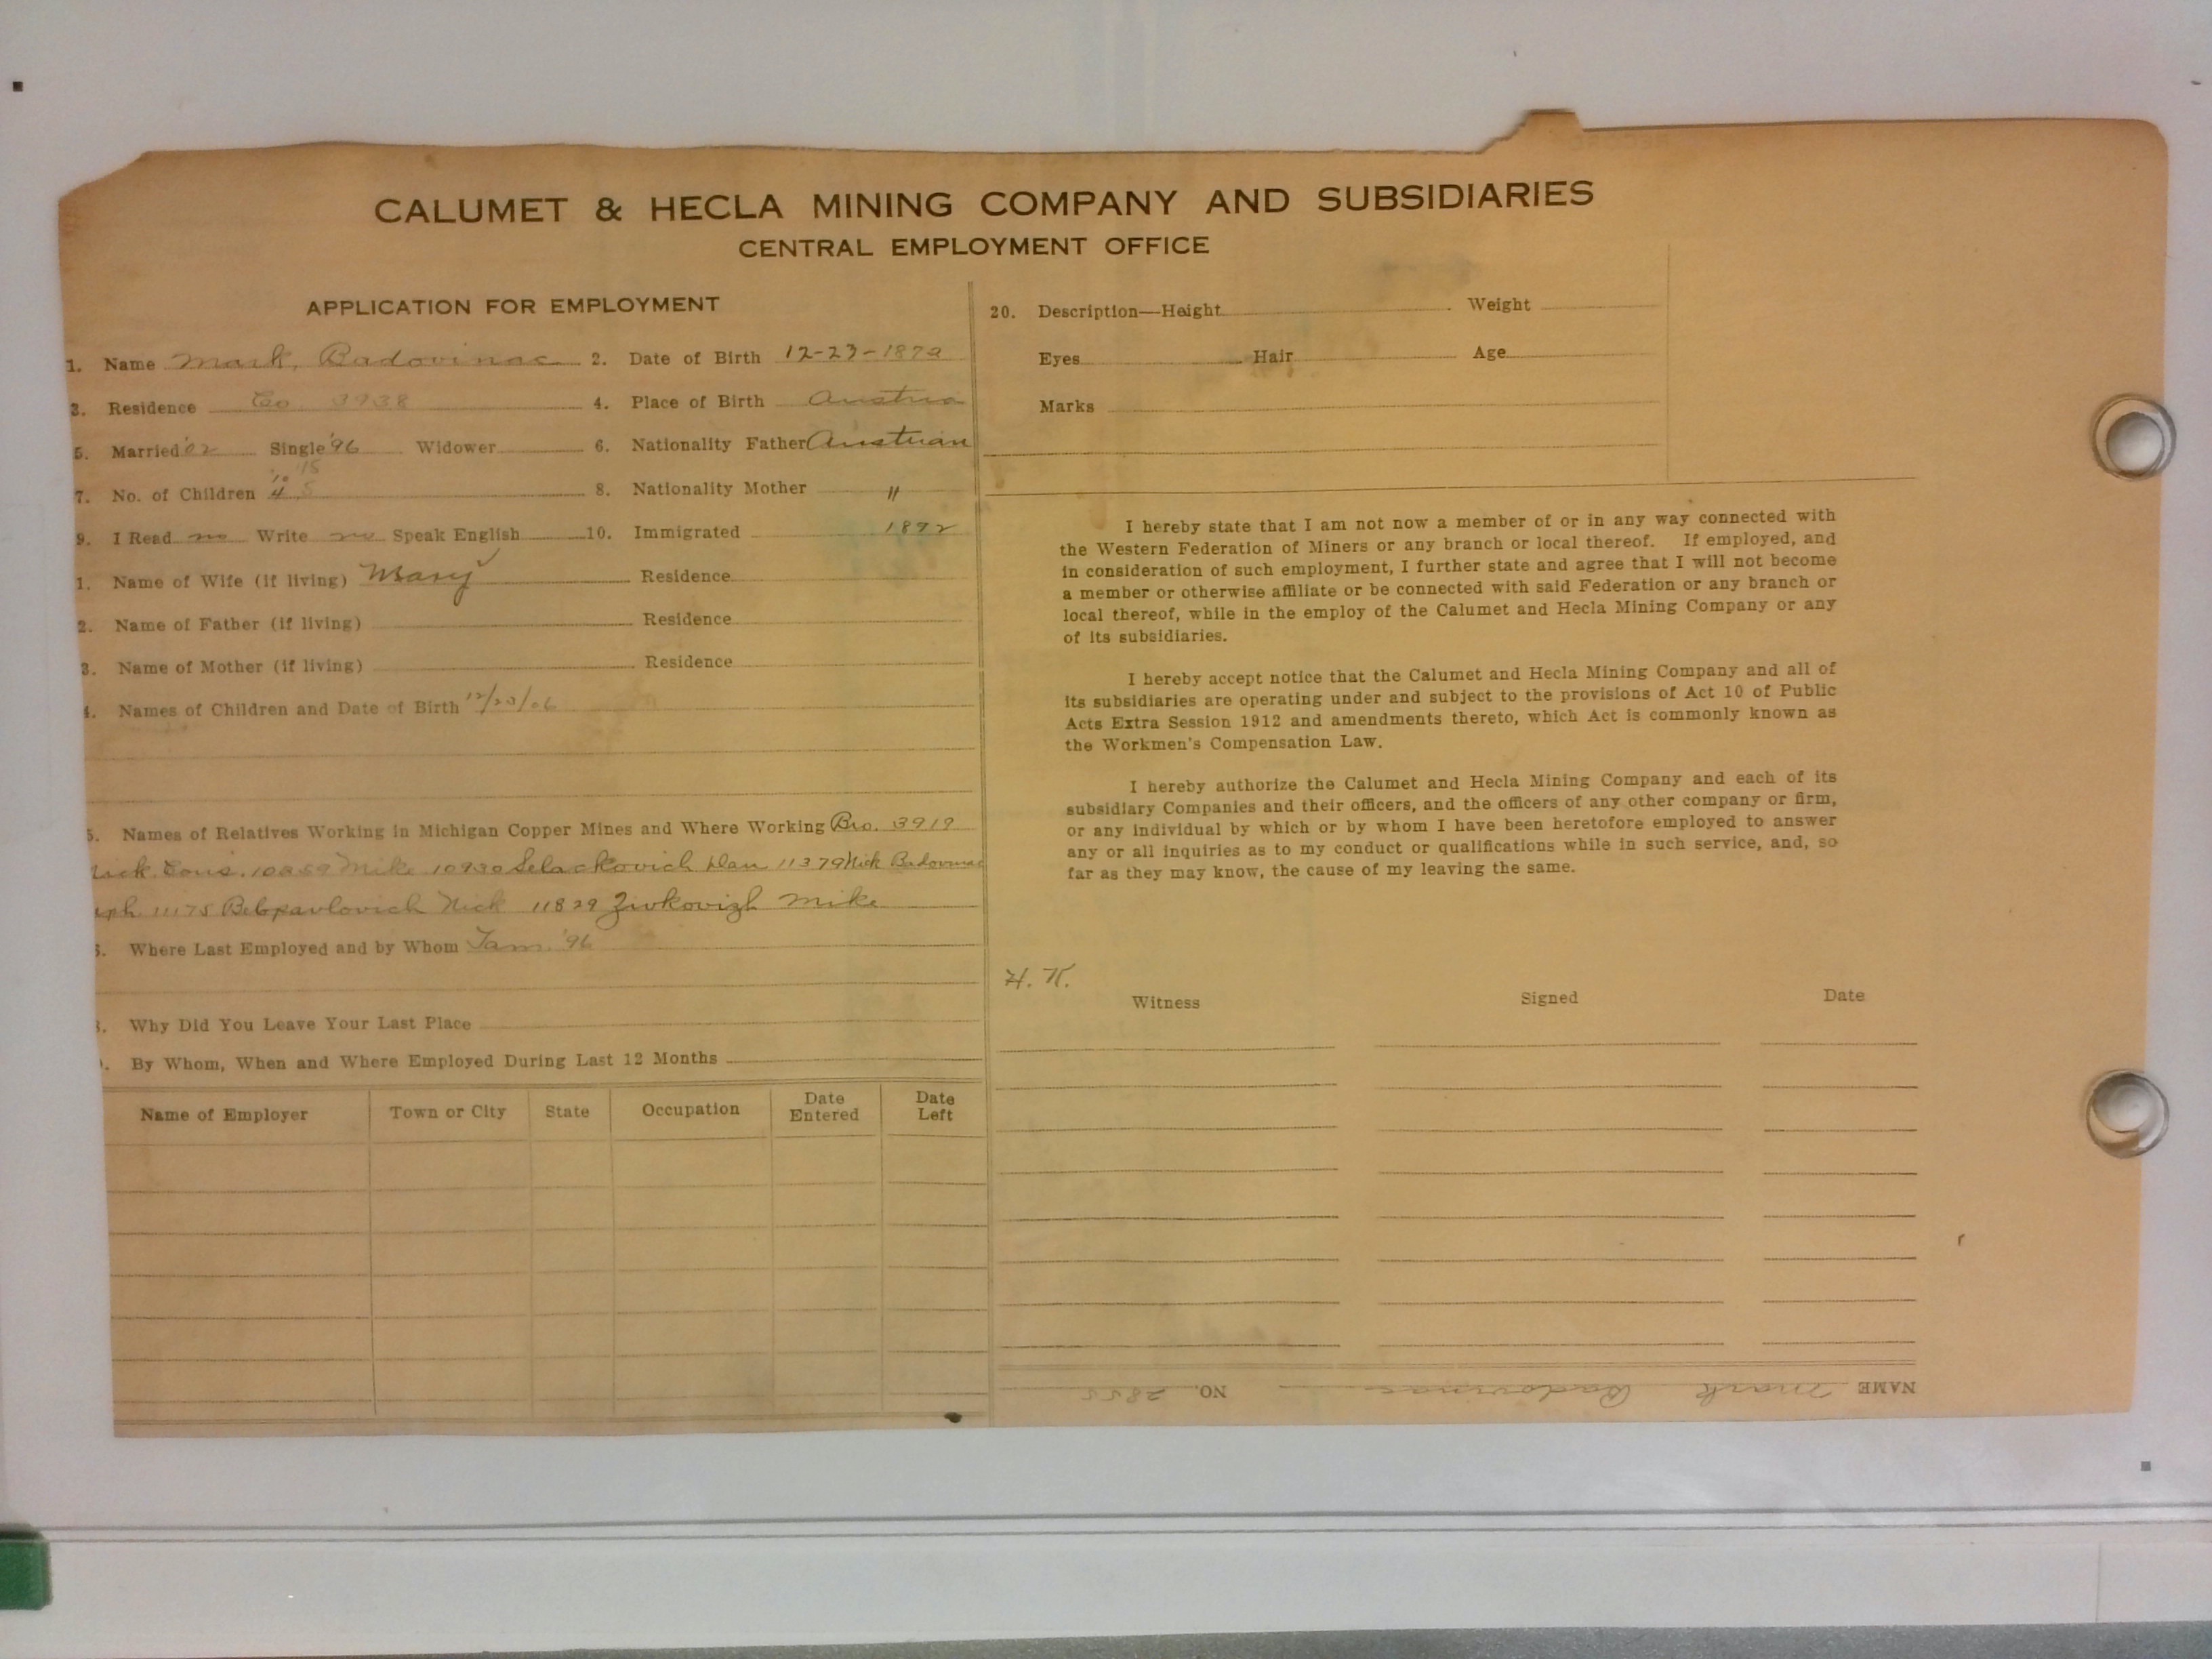 CALUMET & HECLA MINING COMPANY AND SUBSIDIARIES
CENTRAL EMPLOYMENT OFFICE
APPLICATION FOR EMPLOYMENT
1. Name Mark, Badovinac 2. Date of Birth 12-23-1872
3. Residence Co. 3938 4. Place of Birth Austria
5. Married '02 Single '96 Widower 6. Nationality Father Austrian
'10 '15
7. No. of Children 4 5 8. Nationality Mother "
9. I Read no Write no Speak English 10. Immigrated 1892
1. Name of Wife (if living) Mary Residence
2. Name of Father (if living) Residence
3. Name of Mother (if living) Residence
4. Names of Children and Date of Birth 12/23/06
5. Names of Relatives Working in Michigan Copper Mines and Where Working Bro. 3919
Nick Cous. 10859 Mike 10930 Selackovich Dan 11379 Nick Badovinac
eph 11175 Belopavlovich Nick 11829 Zivkovizh Mike
6. Where Last Employed and by Whom Tam. '96
8. Why Did You Leave Your Last Place
9. By Whom, When and Where Employed During Last 12 Months
Name of Employer Town or City State Occupation Date Entered Date Left
20. Description—Height Weight
Eyes Hair Age
Marks
I hereby state that I am not now a member of or in any way connected with
the Western Federation of Miners or any branch or local thereof. If employed, and
in consideration of such employment, I further state and agree that I will not become
a member or otherwise affiliate or be connected with said Federation or any branch or
local thereof, while in the employ of the Calumet and Hecla Mining Company or any
of its subsidiaries.
I hereby accept notice that the Calumet and Hecla Mining Company and all of
its subsidiaries are operating under and subject to the provisions of Act 10 of Public
Acts Extra Session 1912 and amendments thereto, which Act is commonly known as
the Workmen's Compensation Law.
I hereby authorize the Calumet and Hecla Mining Company and each of its
subsidiary Companies and their officers, and the officers of any other company or firm,
or any individual by which or by whom I have been heretofore employed to answer
any or all inquiries as to my conduct or qualifications while in such service, and, so
far as they may know, the cause of my leaving the same.
H. K.
Witness Signed Date
NAME Mark Badovinac NO. 2855